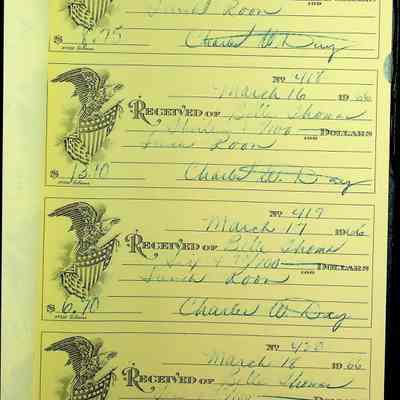 Lunch Room
$ 8.75 Charles W. Day
No 418
March 16 1966
RECEIVED OF Belle Thomas
Three & 10/100 DOLLARS
Lunch Room
$ 3.10 Charles W. Day
No 419
March 17 1966
RECEIVED OF Belle Thomas
Six & 70/100 DOLLARS
Lunch Room
$ 6.70 Charles W. Day
No 420
March 18 1966
RECEIVED OF Belle Thomas
DOLLARS